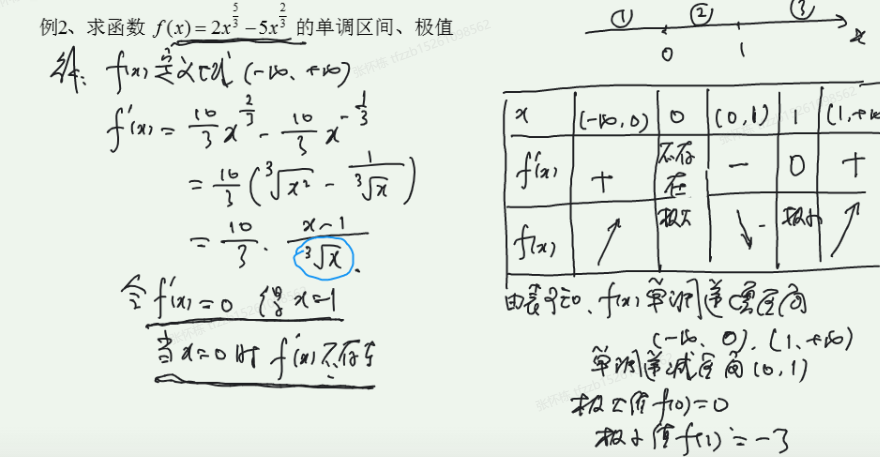 例2、求函数 f(x)=2x^{5/3}-5x^{2/3} 的单调区间、极值
解: f(x)定义域 (-∞、+∞)
f'(x) = 10/3 x^{2/3} - 10/3 x^{-1/3}
= 10/3 (∛x² - 1/∛x)
= 10/3 · (x-1)/∛x.
令 f'(x)=0 得 x=1
当 x=0 时 f'(x) 不存在
① ② ③
0 1 x
x (-∞,0) 0 (0,1) 1 (1,+∞
f'(x) + 不存在 - 0 +
f(x) ↗ 极大 ↘ 极小 ↗
由表可知、f(x) 单调递增区间
(-∞、0), (1、+∞)
单调递减区间 (0,1)
极大值 f(0)=0
极小值 f(1)=-3